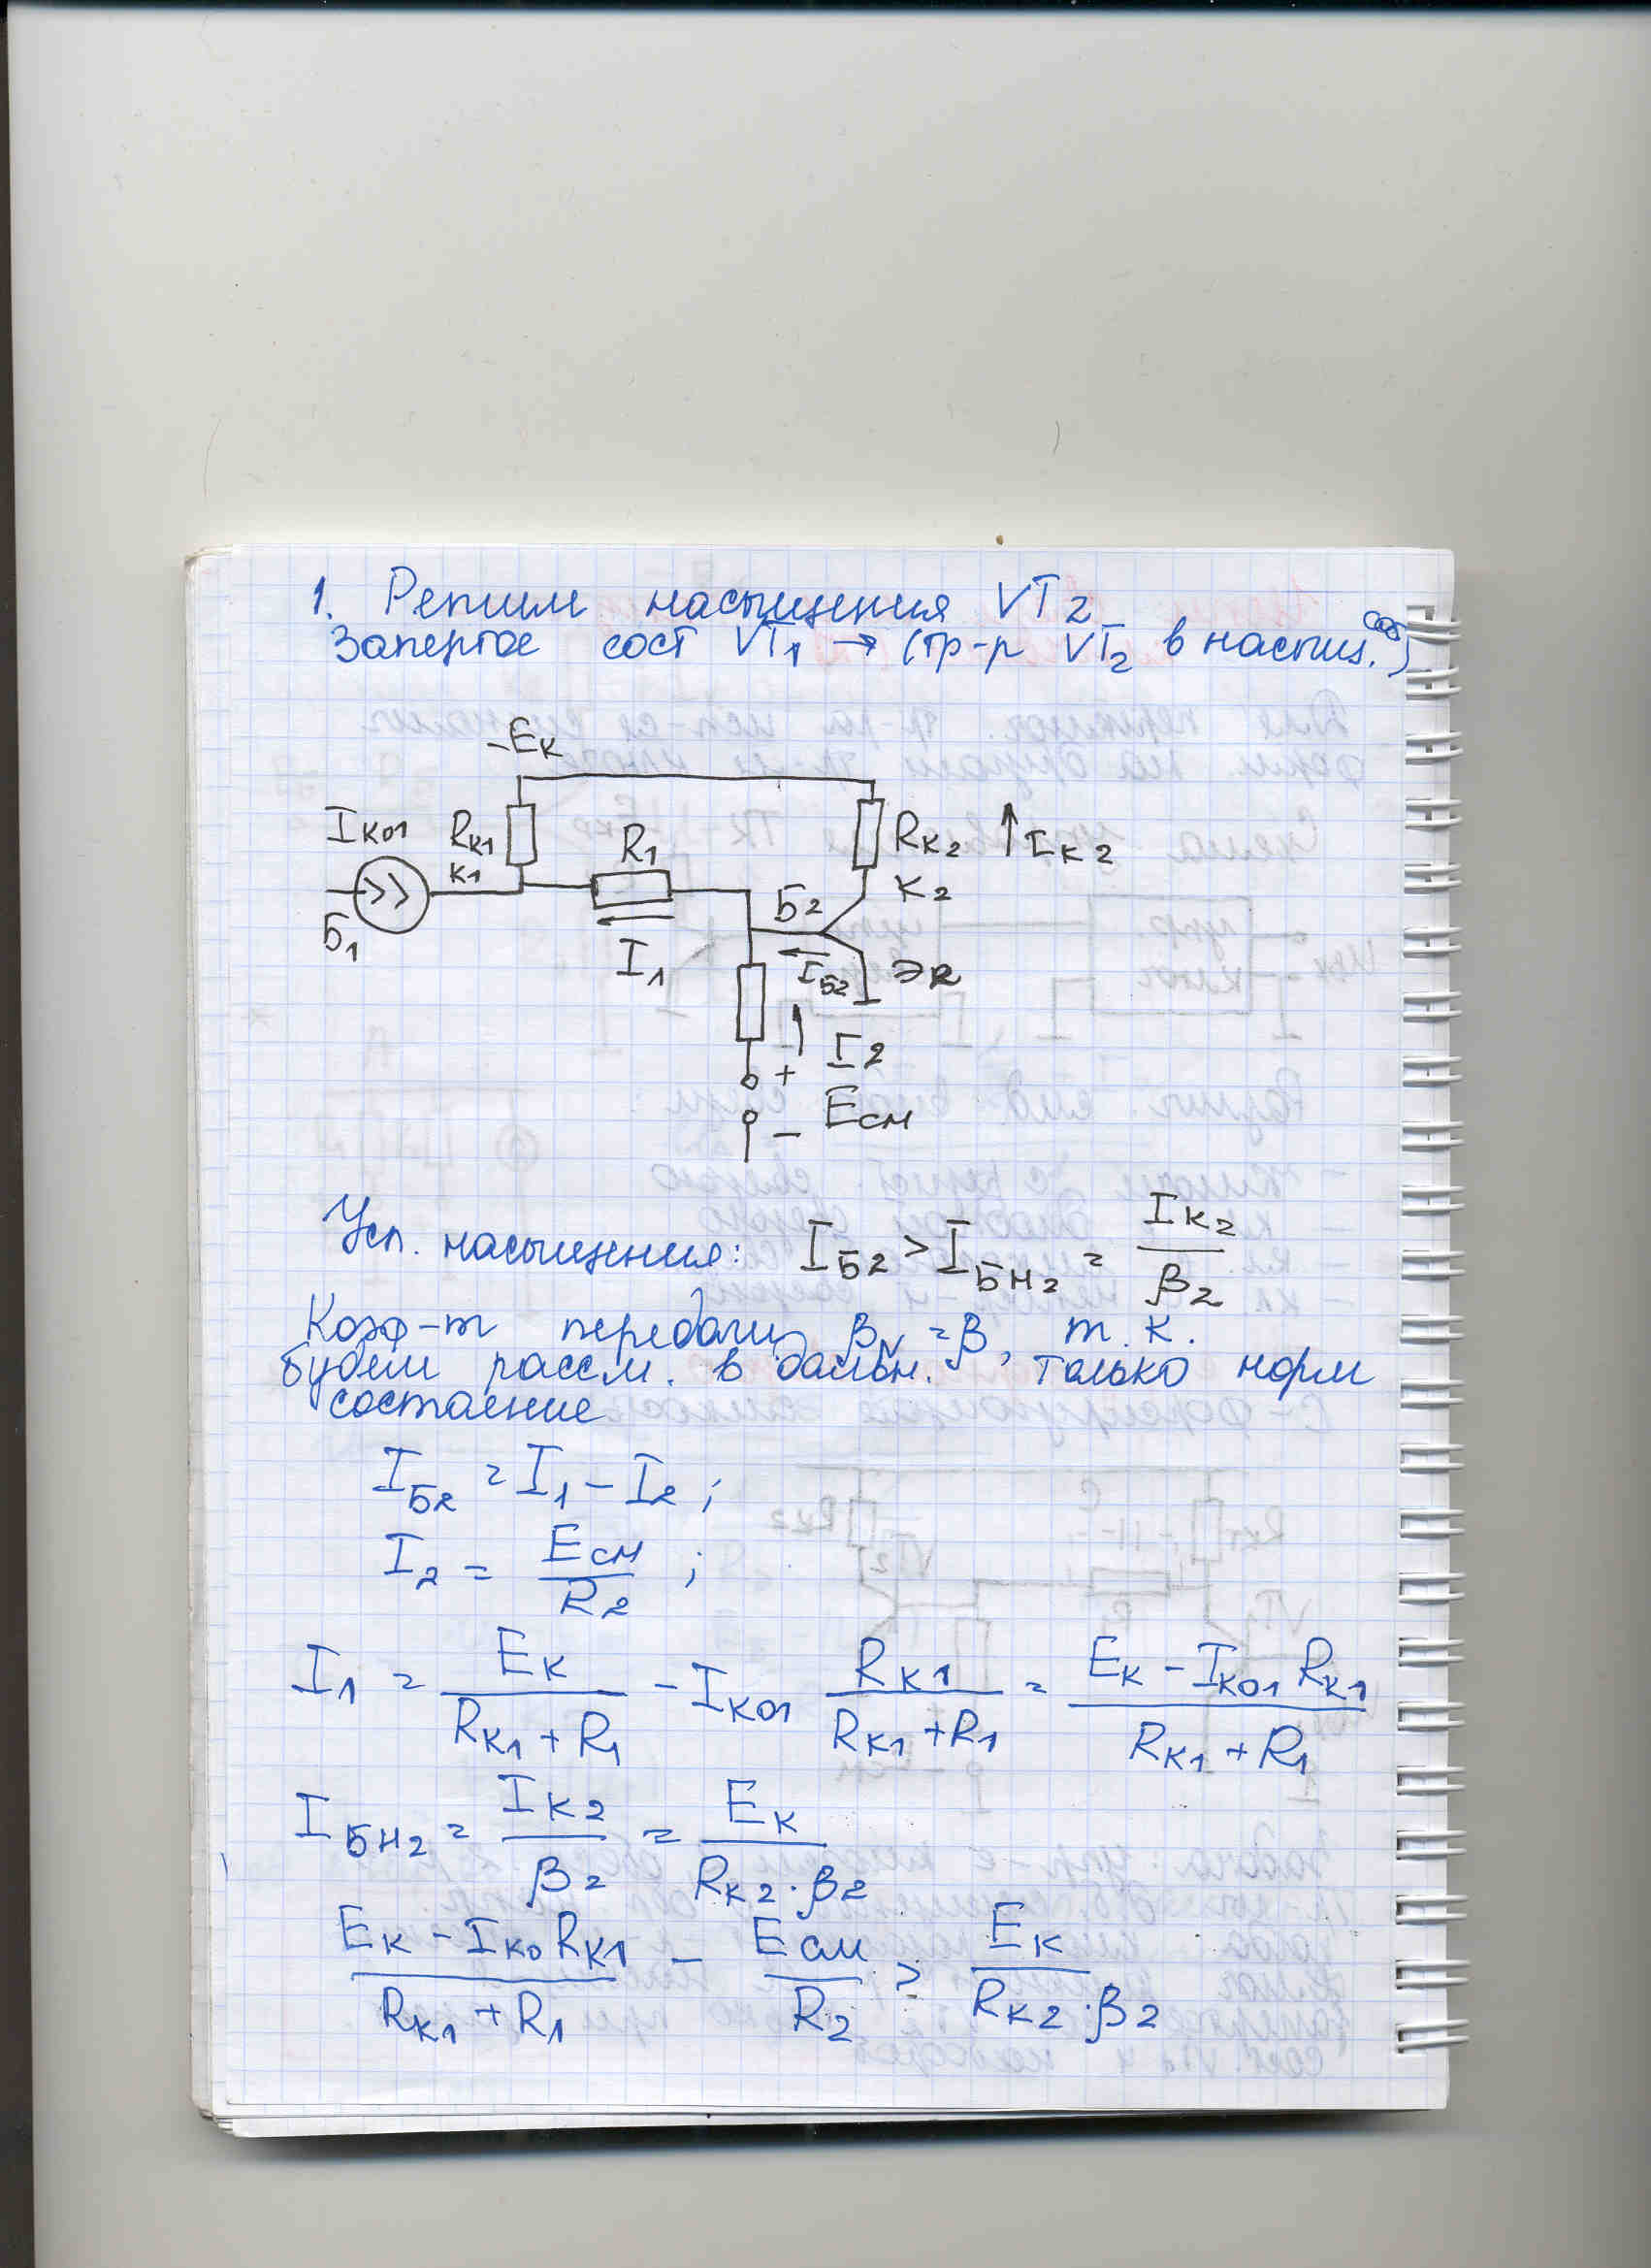 1. Режим насыщения VT2
Запертое сост VT1 → (тр-р VT2 в насыщ. сост)
-Eк
Iко1 Rк1 R1 Rк2 ↑ Iк2
к1 К2
Б1 Б2
I1 IБ2 Э2
I2
+
Eсм
−
Усл. насыщения: IБ2 > IБН2 = Iк2 / β2
Коэф-т передачи βN = β, т.к.
будем рассм. в дальн. только норм
состояние
IБ2 = I1 − I2 ;
I2 = Eсм / R2 ;
I1 = Eк / (Rк1 + R1) − Iко1 Rк1 / (Rк1 + R1) = (Eк − Iко1 Rк1) / (Rк1 + R1)
IБН2 = Iк2 / β2 = Eк / (Rк2 · β2)
(Eк − Iко Rк1) / (Rк1 + R1) − Eсм / R2 > Eк / (Rк2 · β2)